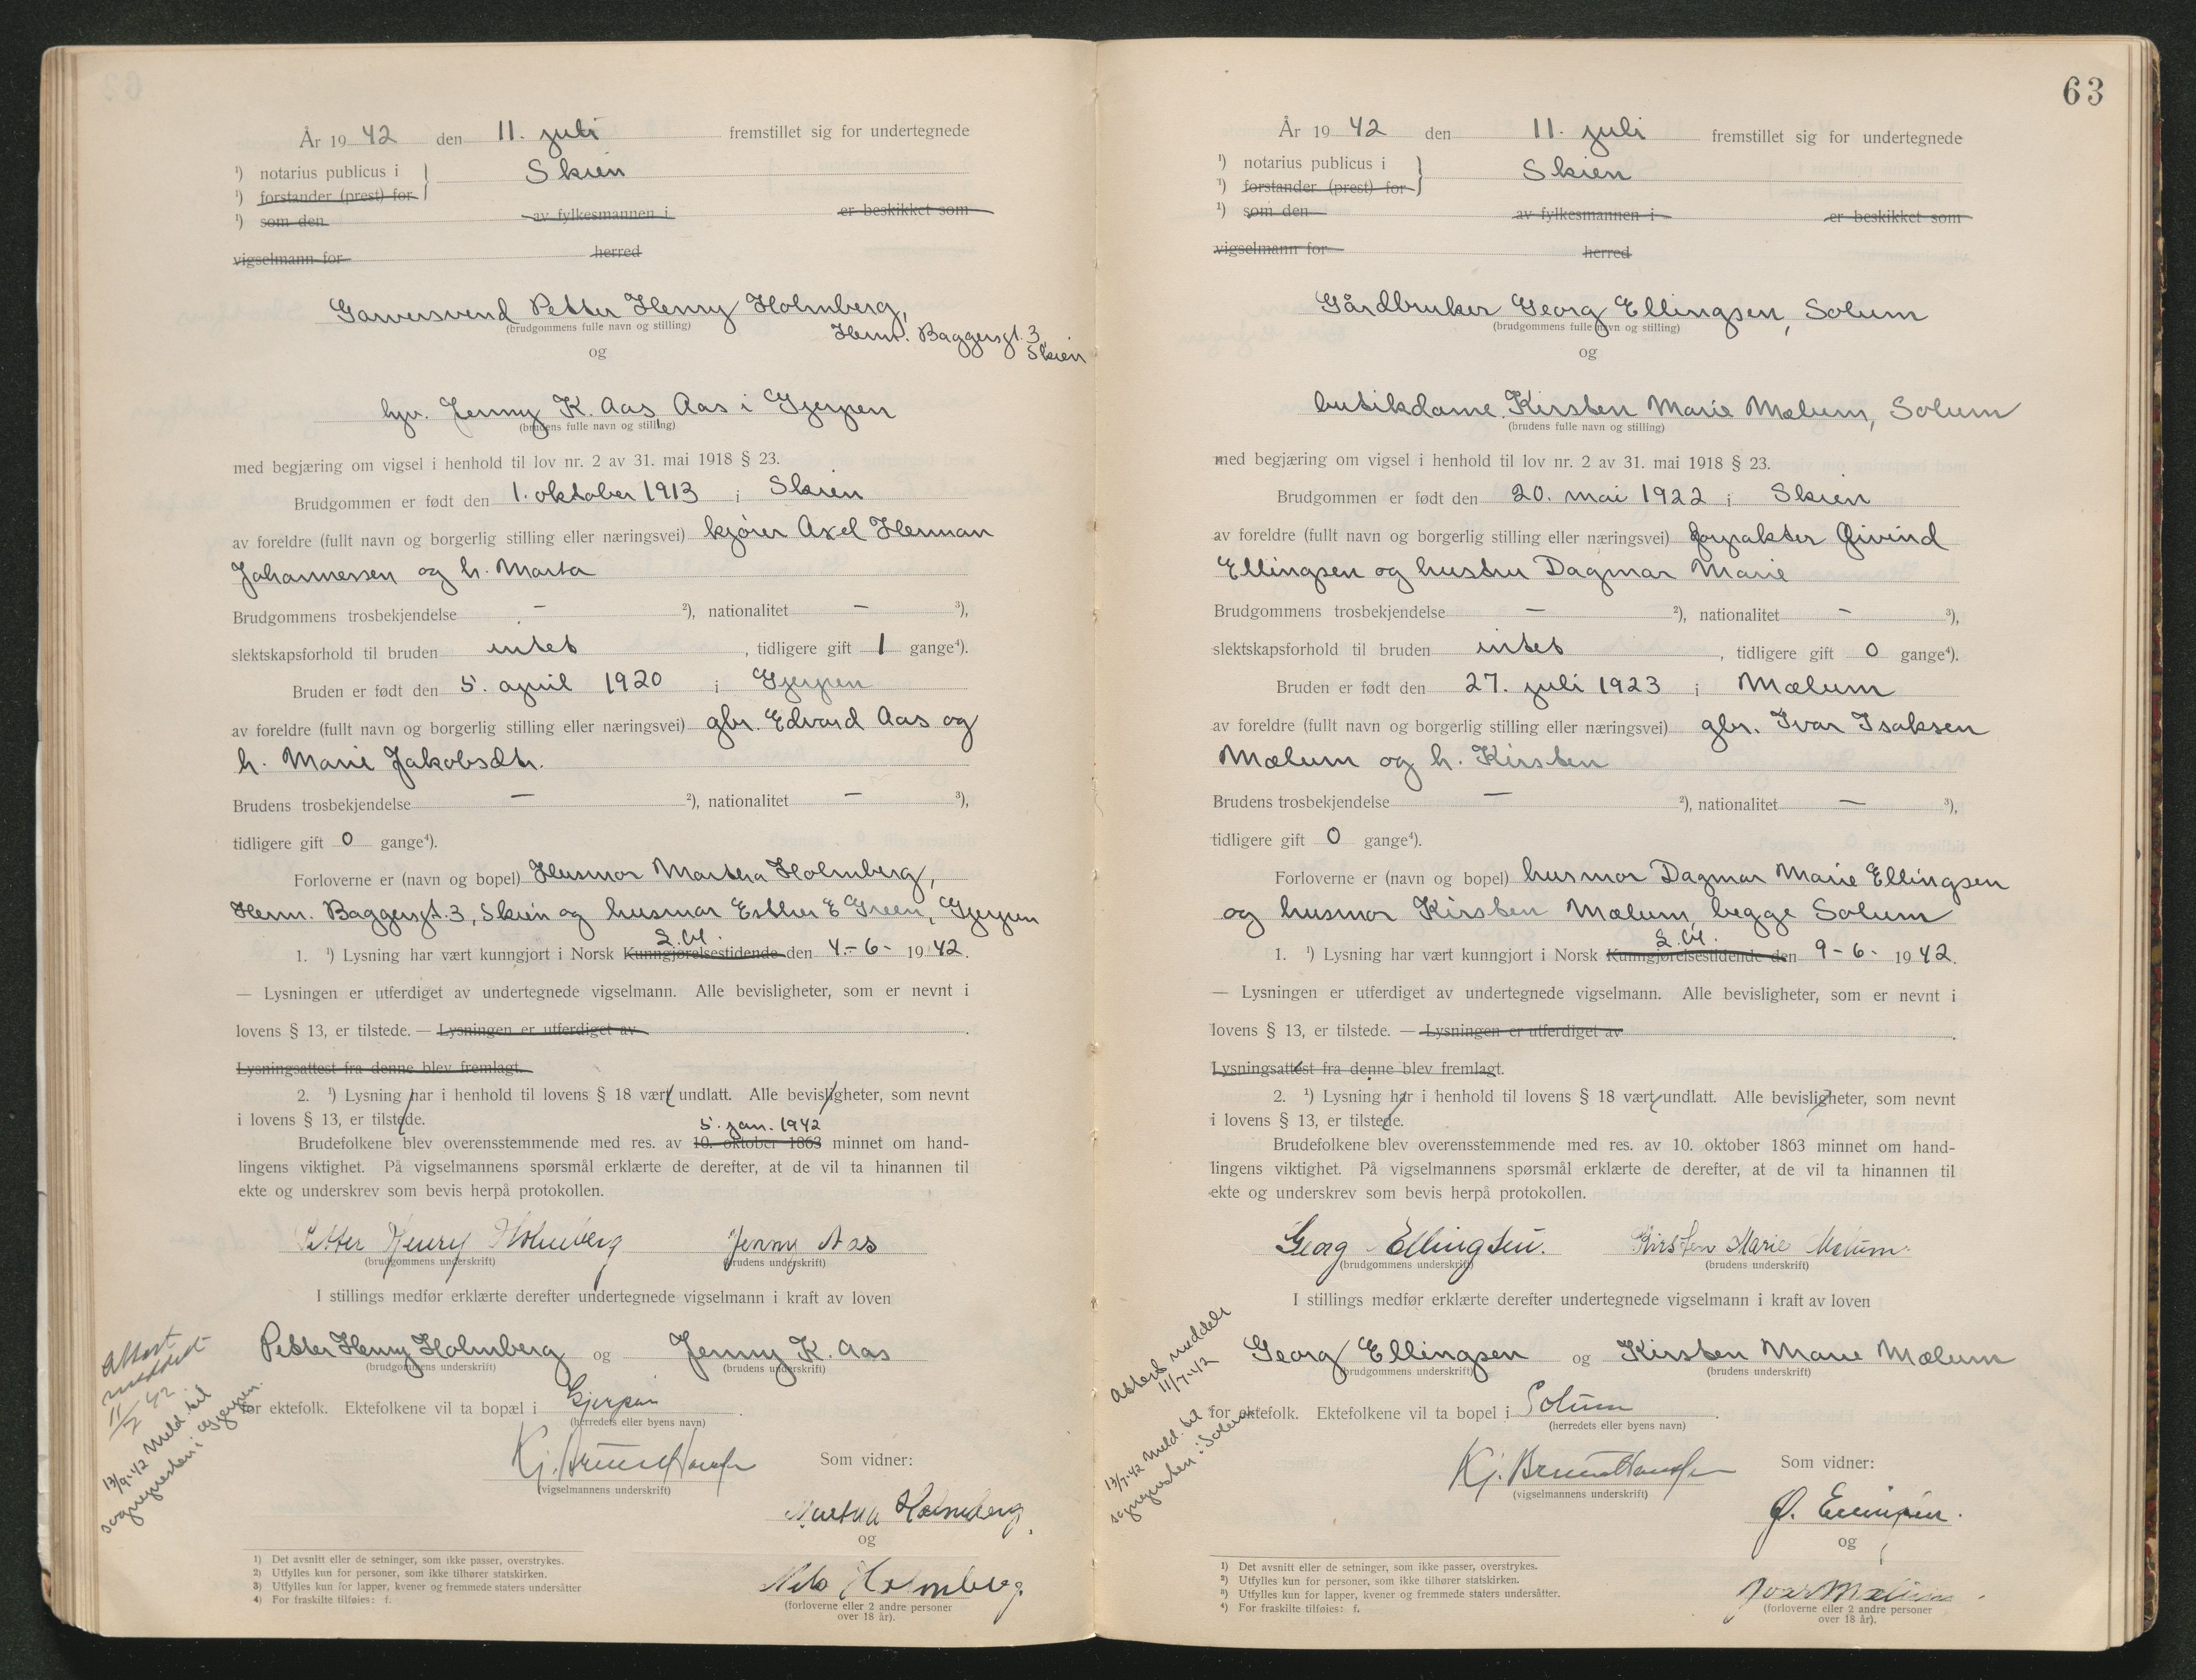 År 1942 den 11. juli fremstillet sig for undertegnede
¹) notarius publicus i } Skien
¹) forstander (prest) for
¹) som den av fylkesmannen i er beskikket som
vigselmann for herred
Garversvend Petter Henry Holmberg,
(brudgommens fulle navn og stilling)
Herm. Baggersgt. 3,
Skien
og
hjv. Jenny K. Aas Aas i Gjerpen
(brudens fulle navn og stilling)
med begjæring om vigsel i henhold til lov nr. 2 av 31. mai 1918 § 23.
Brudgommen er født den 1. oktober 1913 i Skien
av foreldre (fullt navn og borgerlig stilling eller næringsvei) kjører Axel Herman
Johannessen og h. Marta
Brudgommens trosbekjendelse — ²), nationalitet — ³),
slektskapsforhold til bruden intet, tidligere gift 1 gange⁴).
Bruden er født den 5. april 1920 i Gjerpen
av foreldre (fullt navn og borgerlig stilling eller næringsvei) gbr. Edvard Aas og
h. Marie Jakobsdtr.
Brudens trosbekjendelse — ²), nationalitet — ³),
tidligere gift 0 gange⁴).
Forloverne er (navn og bopel) Husmor Martha Holmberg,
Herm. Baggersgt. 3, Skien og husmor Esther E Green, Gjerpen
1. ¹) Lysning har vært kunngjort i Norsk Kunngjørelsestidende den 4.-6- 1942.
— Lysningen er utferdiget av undertegnede vigselmann. Alle bevisligheter, som er nevnt i
lovens § 13, er tilstede. — Lysningen er utferdiget av .
Lysningsattest fra denne blev fremlagt.
2. ¹) Lysning har i henhold til lovens § 18 vært undlatt. Alle bevisligheter, som nevnt
i lovens § 13, er tilstede.
5. jan. 1942
Brudefolkene blev overensstemmende med res. av 10. oktober 1863 minnet om hand-
lingens viktighet. På vigselmannens spørsmål erklærte de derefter, at de vil ta hinannen til
ekte og underskrev som bevis herpå protokollen.
Petter Henry Holmberg Jenny Aas
(brudgommens underskrift) (brudens underskrift)
I stillings medfør erklærte derefter undertegnede vigselmann i kraft av loven
Petter Henry Holmberg og Jenny K. Aas
(brudgommens underskrift) (brudens underskrift)
for ektefolk. Ektefolkene vil ta bopæl i Gjerpen .
(herredets eller byens navn)
Attest
meddelt
11/7 42.
13/9-42 Meld. til
sognepresten i Gjerpen.
Kj. Bruun Hansen
(vigselmannens underskrift)
Som vidner:
Martha Holmberg.
og
Nils Holmberg.
(forloverne eller 2 andre personer
over 18 år).
1) Det avsnitt eller de setninger, som ikke passer, overstrykes.
2) Utfylles kun for personer, som ikke tilhører statskirken.
3) Utfylles kun for lapper, kvener og fremmede staters undersåtter
4) For fraskilte tilføies: f.
63
År 1942 den 11. juli fremstillet sig for undertegnede
¹) notarius publicus i } Skien
¹) forstander (prest) for
¹) som den av fylkesmannen i er beskikket som
vigselmann for herred
Gårdbruker Georg Ellingsen, Solum
(brudgommens fulle navn og stilling)
og
butikdame Kirsten Marie Mælum, Solum
(brudens fulle navn og stilling)
med begjæring om vigsel i henhold til lov nr. 2 av 31. mai 1918 § 23.
Brudgommen er født den 20. mai 1922 i Skien
av foreldre (fullt navn og borgerlig stilling eller næringsvei) forpakter Øivind
Ellingsen og hustru Dagmar Marie
Brudgommens trosbekjendelse — ²), nationalitet — ³),
slektskapsforhold til bruden intet, tidligere gift 0 gange⁴).
Bruden er født den 27. juli 1923 i Mælum
av foreldre (fullt navn og borgerlig stilling eller næringsvei) gbr. Ivar Isaksen
Mælum og h. Kirsten
Brudens trosbekjendelse — ²), nationalitet — ³),
tidligere gift 0 gange⁴).
Forloverne er (navn og bopel) husmor Dagmar Marie Ellingsen
og husmor Kirsten Mælum, begge Solum
1. ¹) Lysning har vært kunngjort i Norsk Kunngjørelsestidende den 9-6- 1942.
— Lysningen er utferdiget av undertegnede vigselmann. Alle bevisligheter, som er nevnt i
lovens § 13, er tilstede. — Lysningen er utferdiget av .
Lysningsattest fra denne blev fremlagt.
2. ¹) Lysning har i henhold til lovens § 18 vært undlatt. Alle bevisligheter, som nevnt
i lovens § 13, er tilstede.
Brudefolkene blev overensstemmende med res. av 10. oktober 1863 minnet om hand-
lingens viktighet. På vigselmannens spørsmål erklærte de derefter, at de vil ta hinannen til
ekte og underskrev som bevis herpå protokollen.
Georg Ellingsen. Kirsten Marie Mælum.
(brudgommens underskrift) (brudens underskrift)
I stillings medfør erklærte derefter undertegnede vigselmann i kraft av loven
Georg Ellingsen og Kirsten Marie Mælum
(brudgommens underskrift) (brudens underskrift)
for ektefolk. Ektefolkene vil ta bopel i Solum .
(herredets eller byens navn)
Attest meddelt
11/7-42
13/7-42 Meld. til
sognepresten i Solum
Kj. Bruun Hansen
(vigselmannens underskrift)
Som vidner:
Ø. Ellingsen.
og
Ivar Mælum
(forloverne eller 2 andre personer
over 18 år).
1) Det avsnitt eller de setninger, som ikke passer, overstrykes.
2) Utfylles kun for personer, som ikke tilhører statskirken.
3) Utfylles kun for lapper, kvener og fremmede staters undersåtter.
4) For fraskilte tilføies: f.